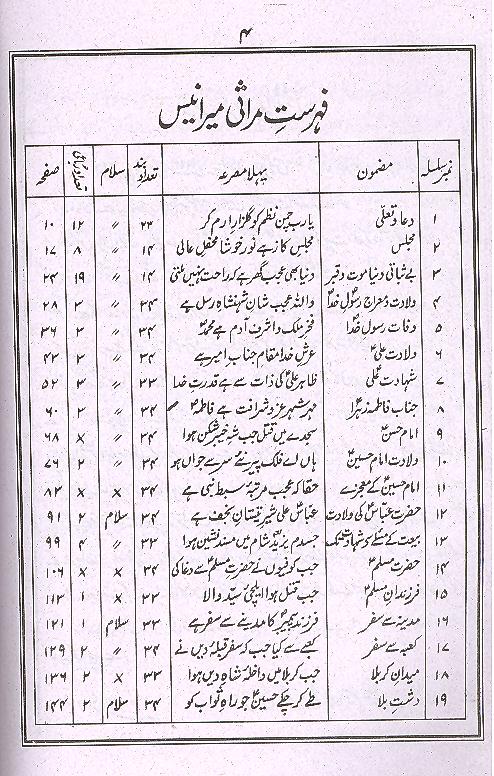 ۴
فہرستِ مراثی میر انیس
نمبر سلسلہ مضمون پہلا مصرعہ تعداد بند سلام تعداد رباعی صفحہ
۱ دعا و تعلّی یارب چمنِ نظم کو گلزارِ ارم کر ۲۳ 〃 ۱۲ ۱۰
۲ مجلس مجلس کا زہے نور خوشا محفلِ عالی ۱۴ 〃 ۸ ۱۷
۳ بے ثباتی دنیا موت و قبر دنیا بھی عجب گھر ہے کہ راحت نہیں ملتی ۱۴ 〃 ۱۹ ۲۴
۴ ولادت و معراج رسولِ خدا واللہ عجب شان شہنشاہِ رسل ہے ۳۴ 〃 ۲ ۲۸
۵ وفات رسولِ خدا فخرِ ملک و اشرفِ آدم ہے محمدؐ ۳۴ 〃 ۲ ۳۶
۶ ولادت علیؑ عرشِ خدا مقامِ جنابِ امیر ہے ۳۴ 〃 ۲ ۴۳
۷ شہادت علیؑ ظاہر علیؑ کی ذات سے ہے قدرتِ خدا ۳۳ 〃 ۳ ۵۲
۸ جناب فاطمہ زہراؑ مہرِ سپہرِ عز و شرافت ہے فاطمہؑ ۳۴ 〃 ۲ ۶۰
۹ امام حسنؑ سجدے میں قتل جب شہِ خیبر شکن ہوا ۳۴ 〃 × ۶۸
۱۰ ولادت امام حسینؑ ہاں اے فلکِ پیر نئے سر سے جواں ہو ۳۴ 〃 ۲ ۷۶
۱۱ امام حسینؑ کے معجزے حقا کہ عجب مرتبۂ سبطِ نبی ہے ۳۴ × × ۸۴
۱۲ حضرت عباسؑ کی ولادت عباسِ علی شیرِ نیستانِ نجف ہے ۳۴ سلام ۲ ۹۱
۱۳ بیعت کے مسئلے سے شہادت تک جسدم یزید شام میں مسند نشین ہوا ۳۳ 〃 ۴ ۹۹
۱۴ حضرت مسلمؑ جب کوفیوں نے حضرتِ مسلمؑ سے دغا کی ۳۴ × × ۱۰۶
۱۵ فرزندانِ مسلمؑ جب قتل ہوا ایلچیِ سیدِ والا ۳۳ × ۱ ۱۱۳
۱۶ مدینہ سے سفر فرزندِ پیمبرؐ کا مدینے سے سفر ہے ۳۳ سلام ۱ ۱۲۱
۱۷ کعبہ سے سفر کعبے سے کیا جب کہ سفر قبلۂ دیں نے ۳۴ 〃 ۲ ۱۲۹
۱۸ میدانِ کربلا جب کربلا میں داخلۂ شاہِ دیں ہوا ۳۳ × ۲ ۱۳۶
۱۹ دشتِ بلا طے کر چکے حسینؑ جو راہِ ثواب کو ۳۴ سلام ۲ ۱۴۴